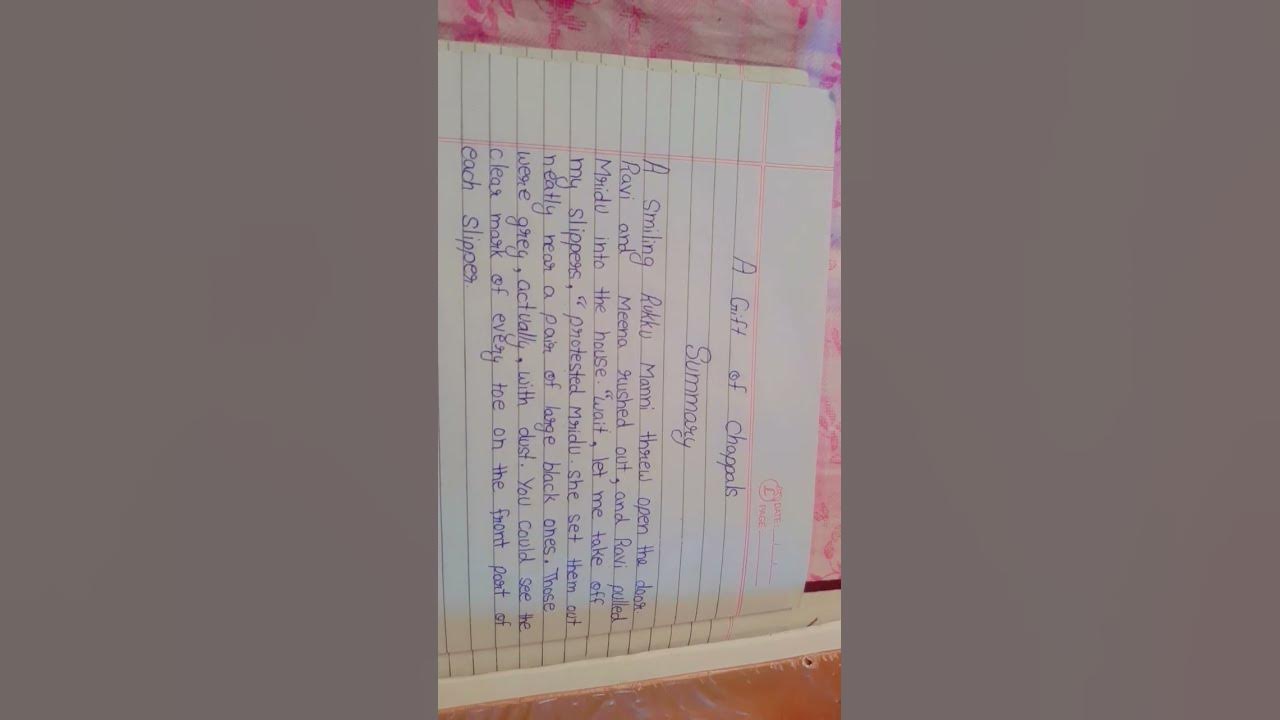 DATE:
PAGE:
A Gift of Chappals
Summary
A Smiling Rukku Manni threw open the door
Ravi and Meena rushed out, and Ravi pulled
Mridu into the house. "Wait, let me take off
my slippers, "protested Mridu. she set them out
neatly near a pair of large black ones. Those
were grey, actually, with dust. You could see the
clear mark of every toe on the front part of
each Slipper.